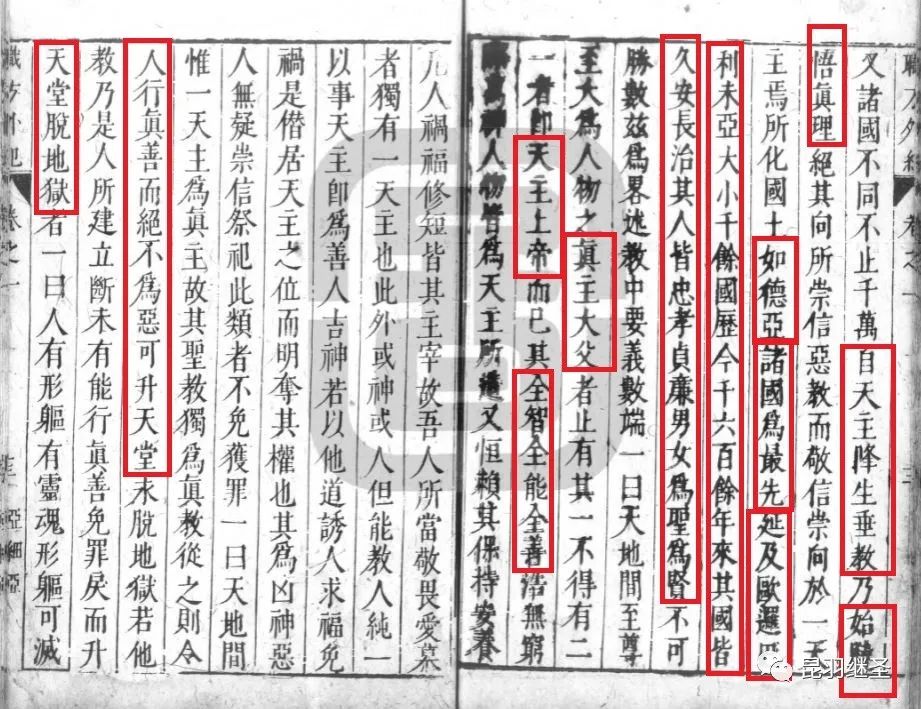 職方外紀 卷之一
又諸國不同不止千萬自天主降生垂教乃始
悟眞理絕其向所崇信惡教而敬信崇向於一天
主焉所化國土如德亞諸國爲最先延及歐邏
利未亞大小千餘國歷今千六百餘年來其國皆
久安長治其人皆忠孝貞廉男女爲聖爲賢不可
勝數茲爲畧述教中要義數端一曰天地間至尊
至大爲人物之眞主大父者止有其一不得有二
一者卽天主上帝而已其全智全能全善浩無窮
際萬神人物皆爲天主所造又恒賴其保持安養
凡人禍福修短皆其主宰故吾人所當敬畏愛慕
者獨有一天主也此外或神或人但能教人純一
以事天主卽爲善人吉神若以他道誘人求福免
禍是僭居天主之位而明奪其權也其爲凶神惡
人無疑崇信祭祀此類者不免獲罪一曰天地間
惟一天主爲眞主故其聖教獨爲眞教從之則令
人行眞善而絕不爲惡可升天堂永脫地獄若他
教乃是人所建立斷未有能行眞善免罪戾而升
天堂脫地獄者一曰人有形軀有靈魂形軀可滅
職方外紀 卷之一 亞細亞
昆羽继圣